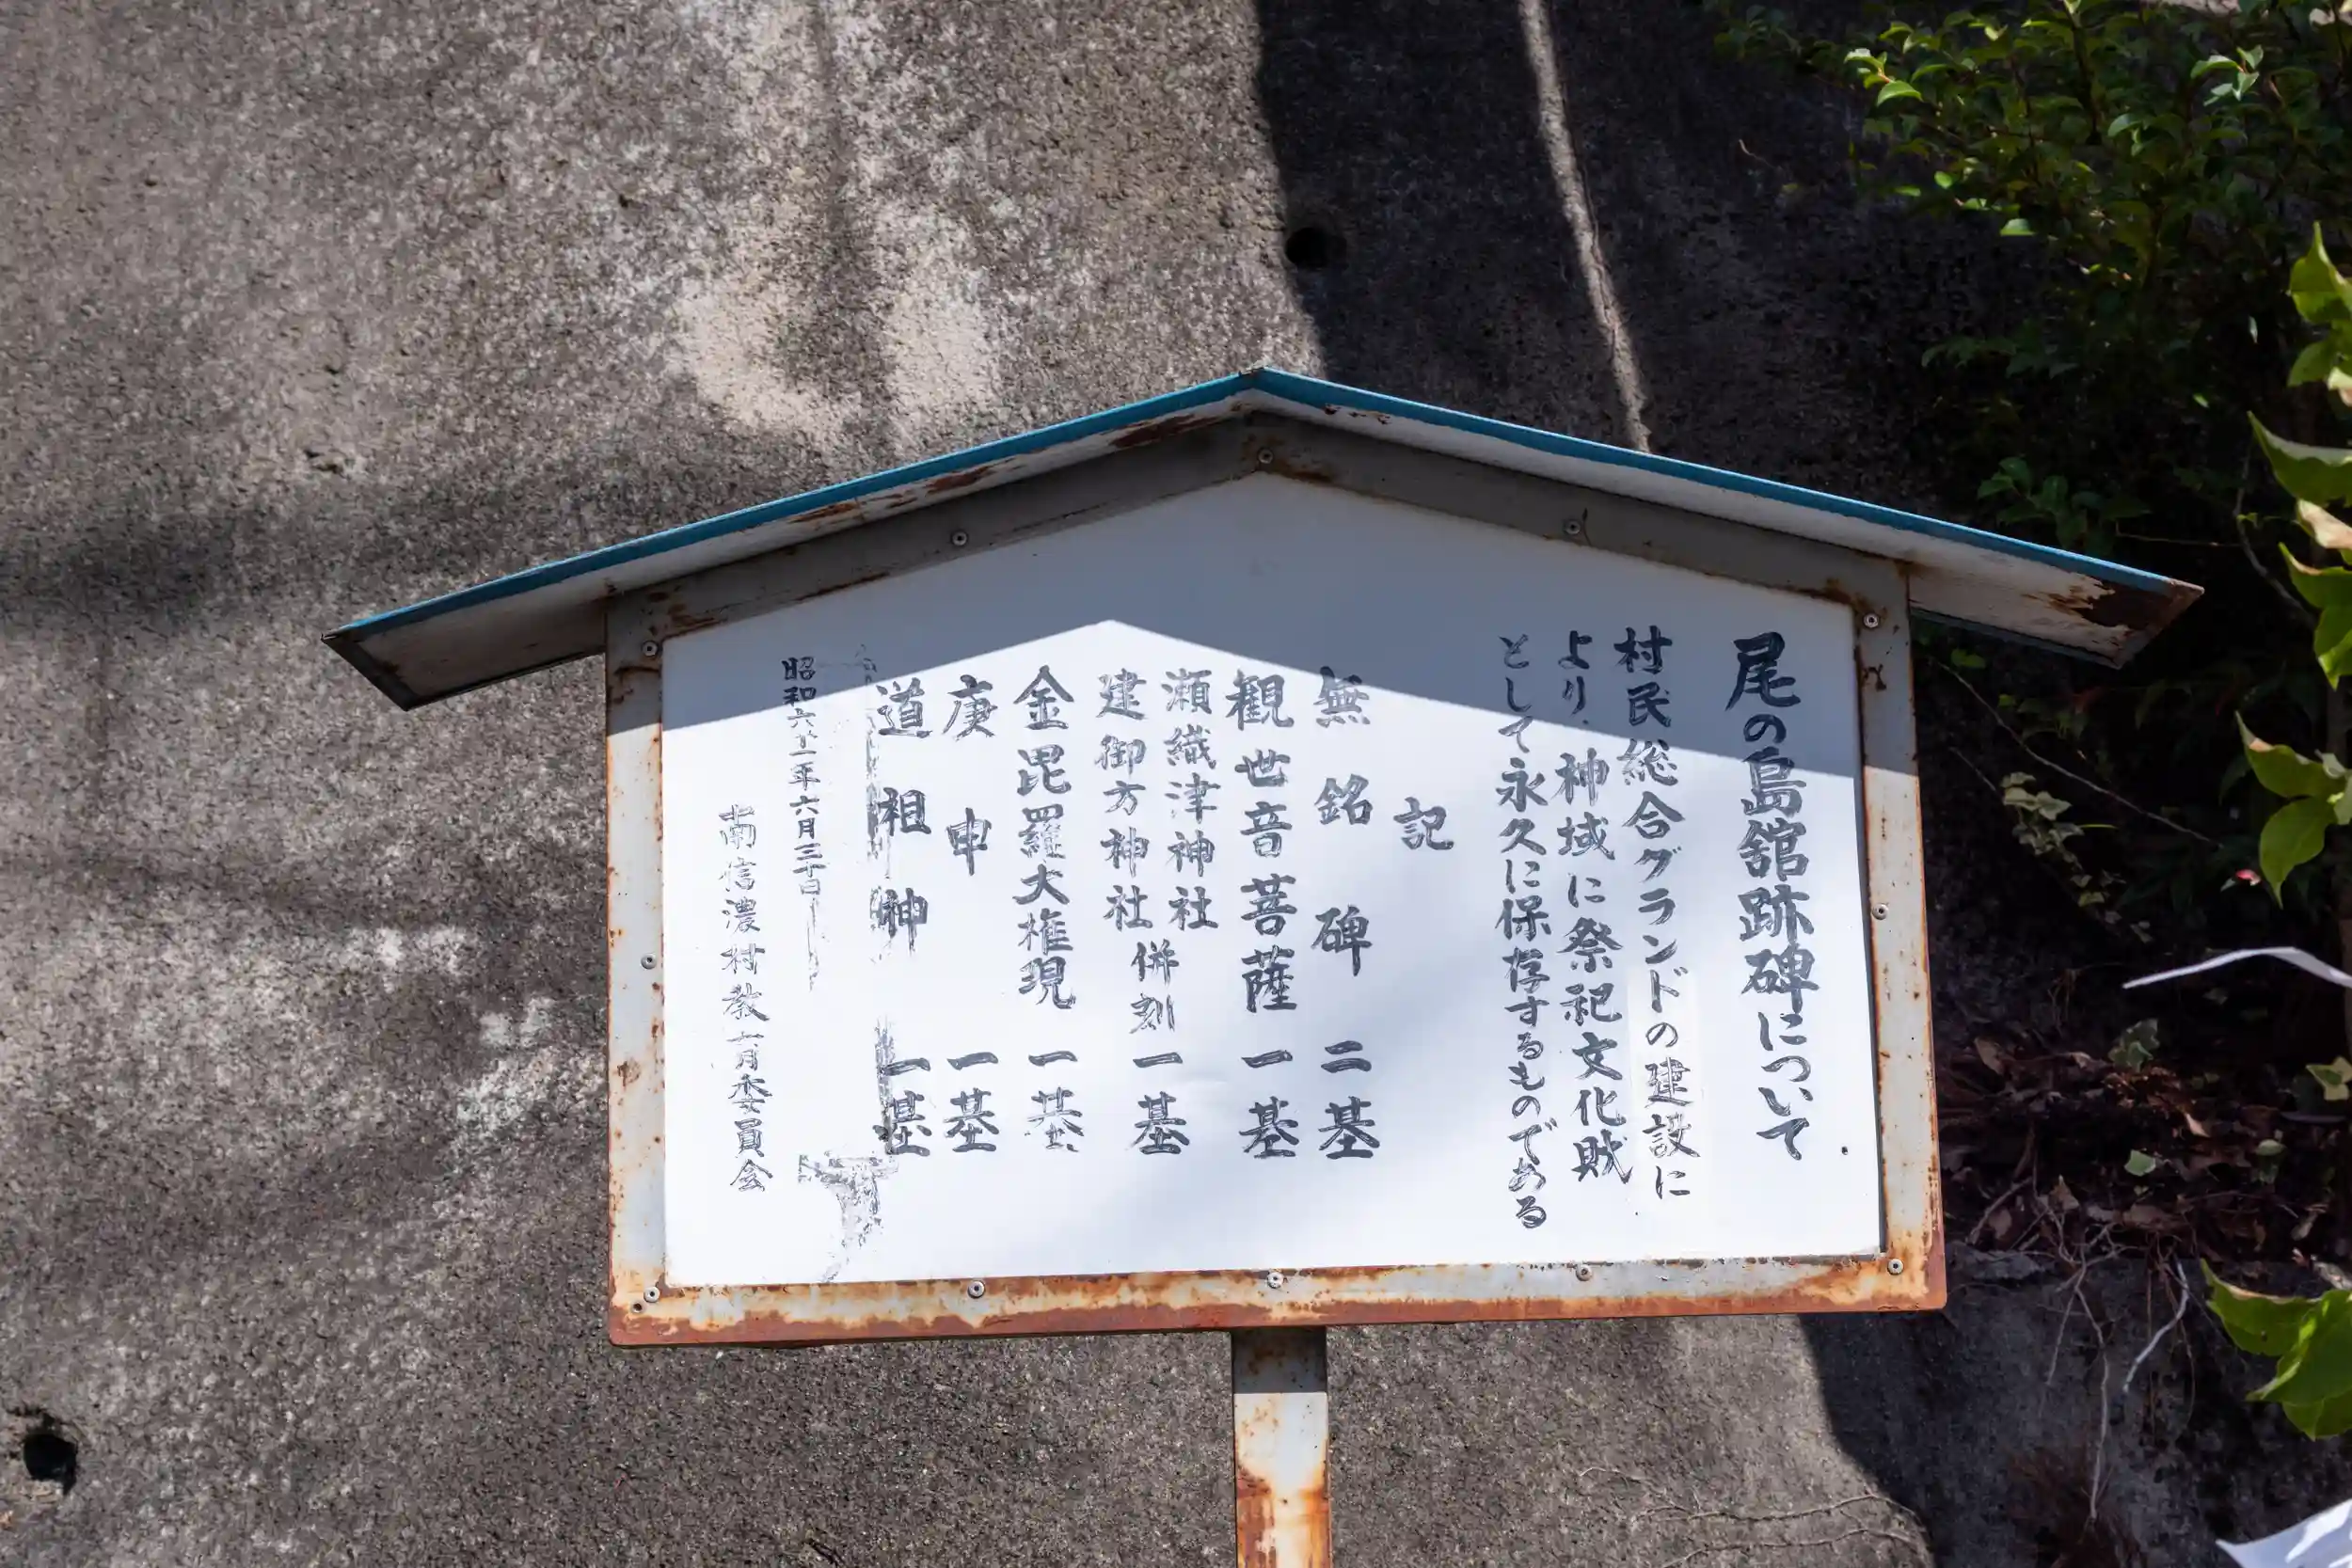 尾の島舘跡碑について
村民総合グランドの建設に
より、神域に祭祀文化財
として永久に保存するものである
記
無銘碑 二基
観世音菩薩 一基
瀬織津神社
建御方神社 併刻 一基
金毘羅大権現 一基
庚申 一基
道祖神 一基
昭和六十一年六月三十日
南信濃村教育委員会